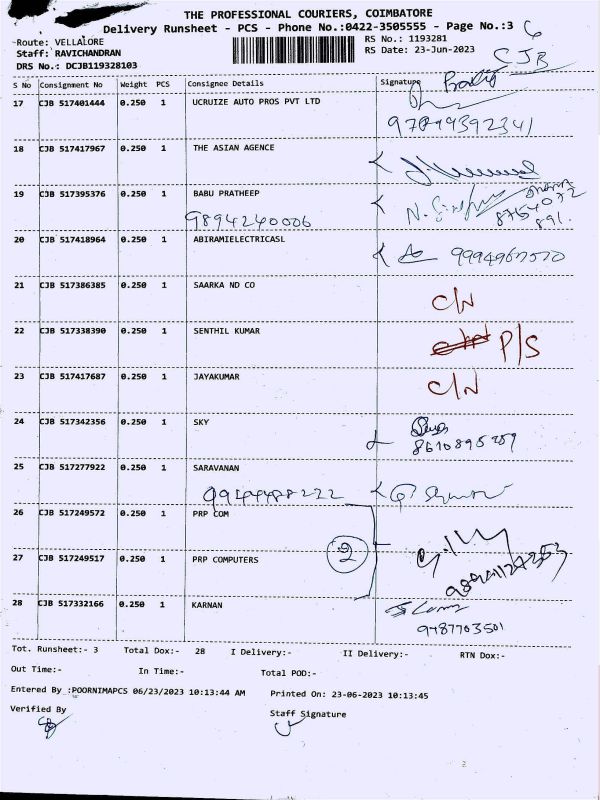 THE PROFESSIONAL COURIERS, COIMBATORE
Delivery Runsheet - PCS - Phone No.:0422-3505555 - Page No.:3
Route: VELLALORE RS No.: 1193281
Staff: RAVICHANDRAN RS Date: 23-Jun-2023
DRS No.: DCJB119328103 CJB
S No Consignment No Weight PCS Consignee Details Signature
17 CJB 517401444 0.250 1 UCRUIZE AUTO PROS PVT LTD
18 CJB 517417967 0.250 1 THE ASIAN AGENCE
19 CJB 517395376 0.250 1 BABU PRATHEEP
9894240006
20 CJB 517418964 0.250 1 ABIRAMIELECTRICASL
21 CJB 517386385 0.250 1 SAARKA ND CO
C/N
22 CJB 517338390 0.250 1 SENTHIL KUMAR
P/S
23 CJB 517417687 0.250 1 JAYAKUMAR
C/N
24 CJB 517342356 0.250 1 SKY
25 CJB 517277922 0.250 1 SARAVANAN
26 CJB 517249572 0.250 1 PRP COM
2
27 CJB 517249517 0.250 1 PRP COMPUTERS
28 CJB 517332166 0.250 1 KARNAN
9787703501
Tot. Runsheet:- 3 Total Dox:- 28 I Delivery:- II Delivery:- RTN Dox:-
Out Time:- In Time:- Total POD:-
Entered By :POORNIMAPCS 06/23/2023 10:13:44 AM Printed On: 23-06-2023 10:13:45
Verified By Staff Signature
2